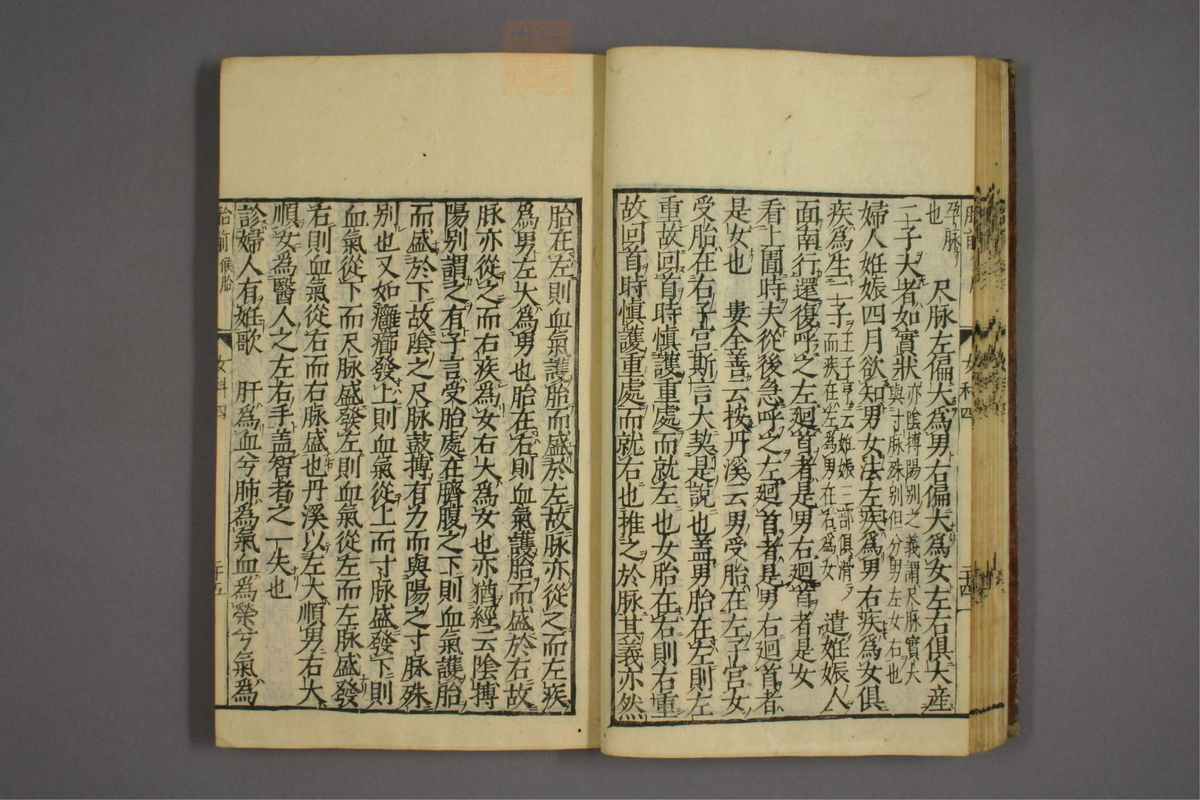 孕脉
也　尺脉左偏大為男右偏大為女左右俱大産
二子大者如實狀亦陰搏陽別之義謂尺脉實大
與寸脉殊別但分男左女右也
婦人妊娠四月欲知男女法左疾為男右疾為女俱
疾為生二子王子亨云妊娠三部俱滑
而疾在左為男在右為女　遣妊娠人
面南行還復呼之左廻首者是男右廻首者是女
看上圊時夫從後急呼之左廻首者是男右廻首者
是女也　婁全善云按丹溪云男受胎在左子宮女
受胎在右子宮斯言大契是說也盖男胎在左則左
重故回首時慎護重處而就左也女胎在右則右重
故回首時慎護重處而就右也推之於脉其義亦然
女科四
二十四
胎在左則血氣護胎而盛於左故脉亦從之而左疾
為男左大為男也胎在右則血氣護胎而盛於右故
脉亦從之而右疾為女右大為女也亦猶經云陰搏
陽別謂之有子言受胎處在臍腹之下則血氣護胎
而盛於下故陰之尺脉鼓搏有力而與陽之寸脉殊
別也又如癰癤發上則血氣從上而寸脉盛發下則
血氣從下而尺脉盛發左則血氣從左而左脉盛發
右則血氣從右而右脉盛也丹溪以左大順男右大
順女為醫人之左右手盖智者之一失也
診婦人有妊歌　肝為血兮肺為氣血為榮兮氣為
胎前候胎
女科四
二十五